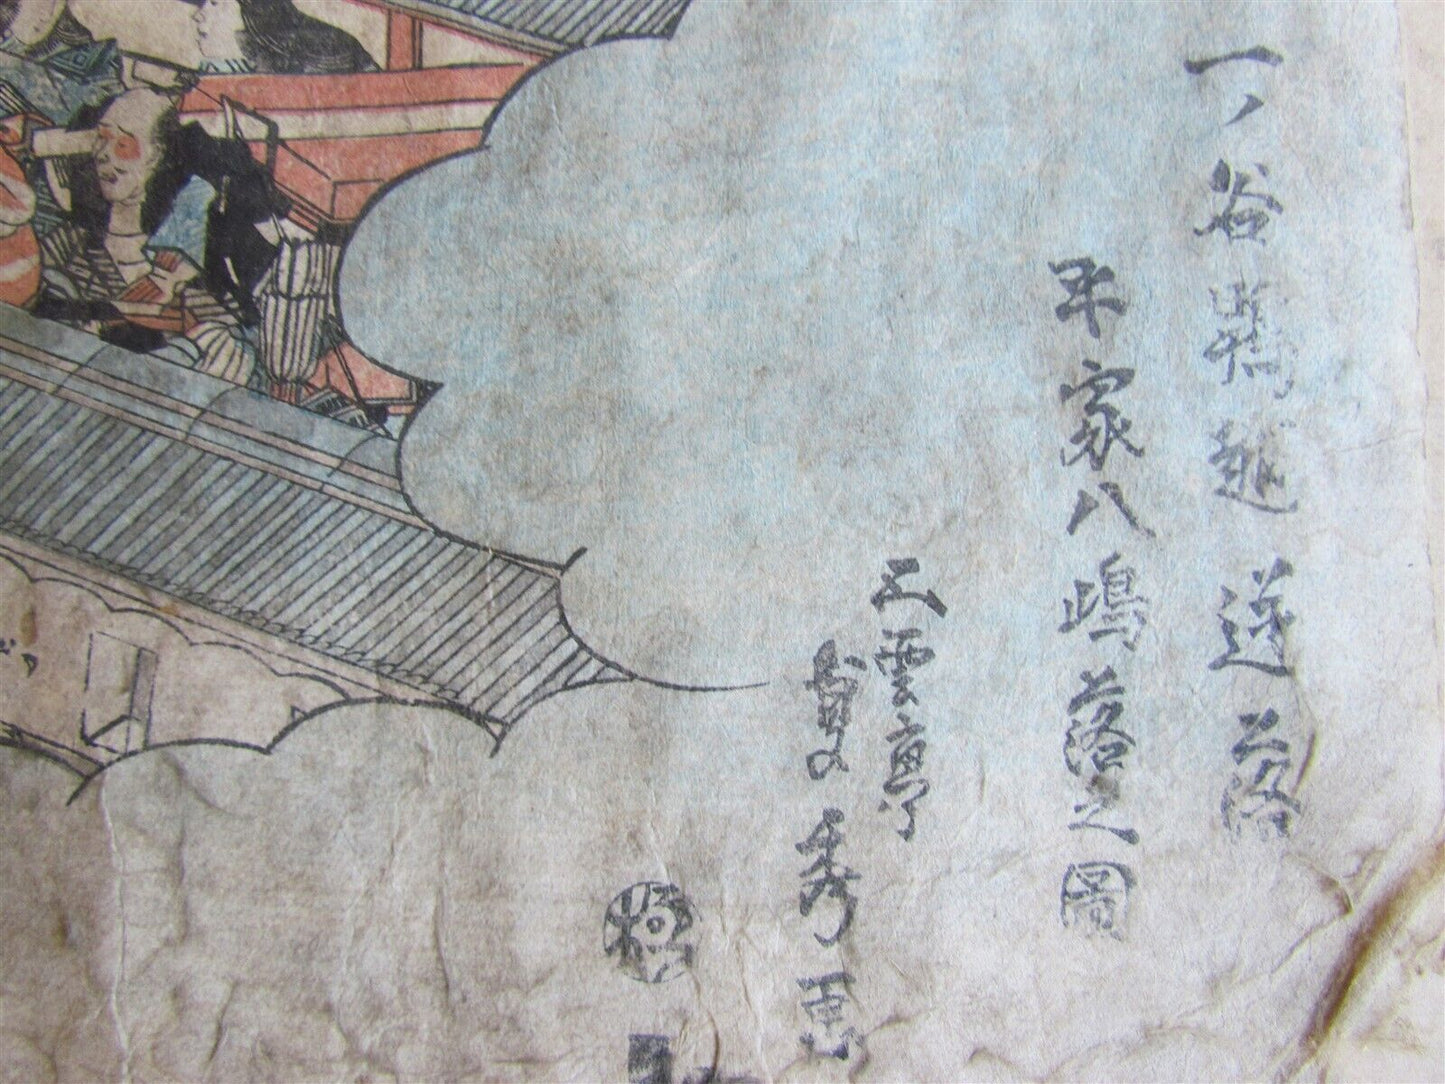 一ノ谷鵯越逆落
平家八嶋落之圖
五雲亭
貞秀画
極